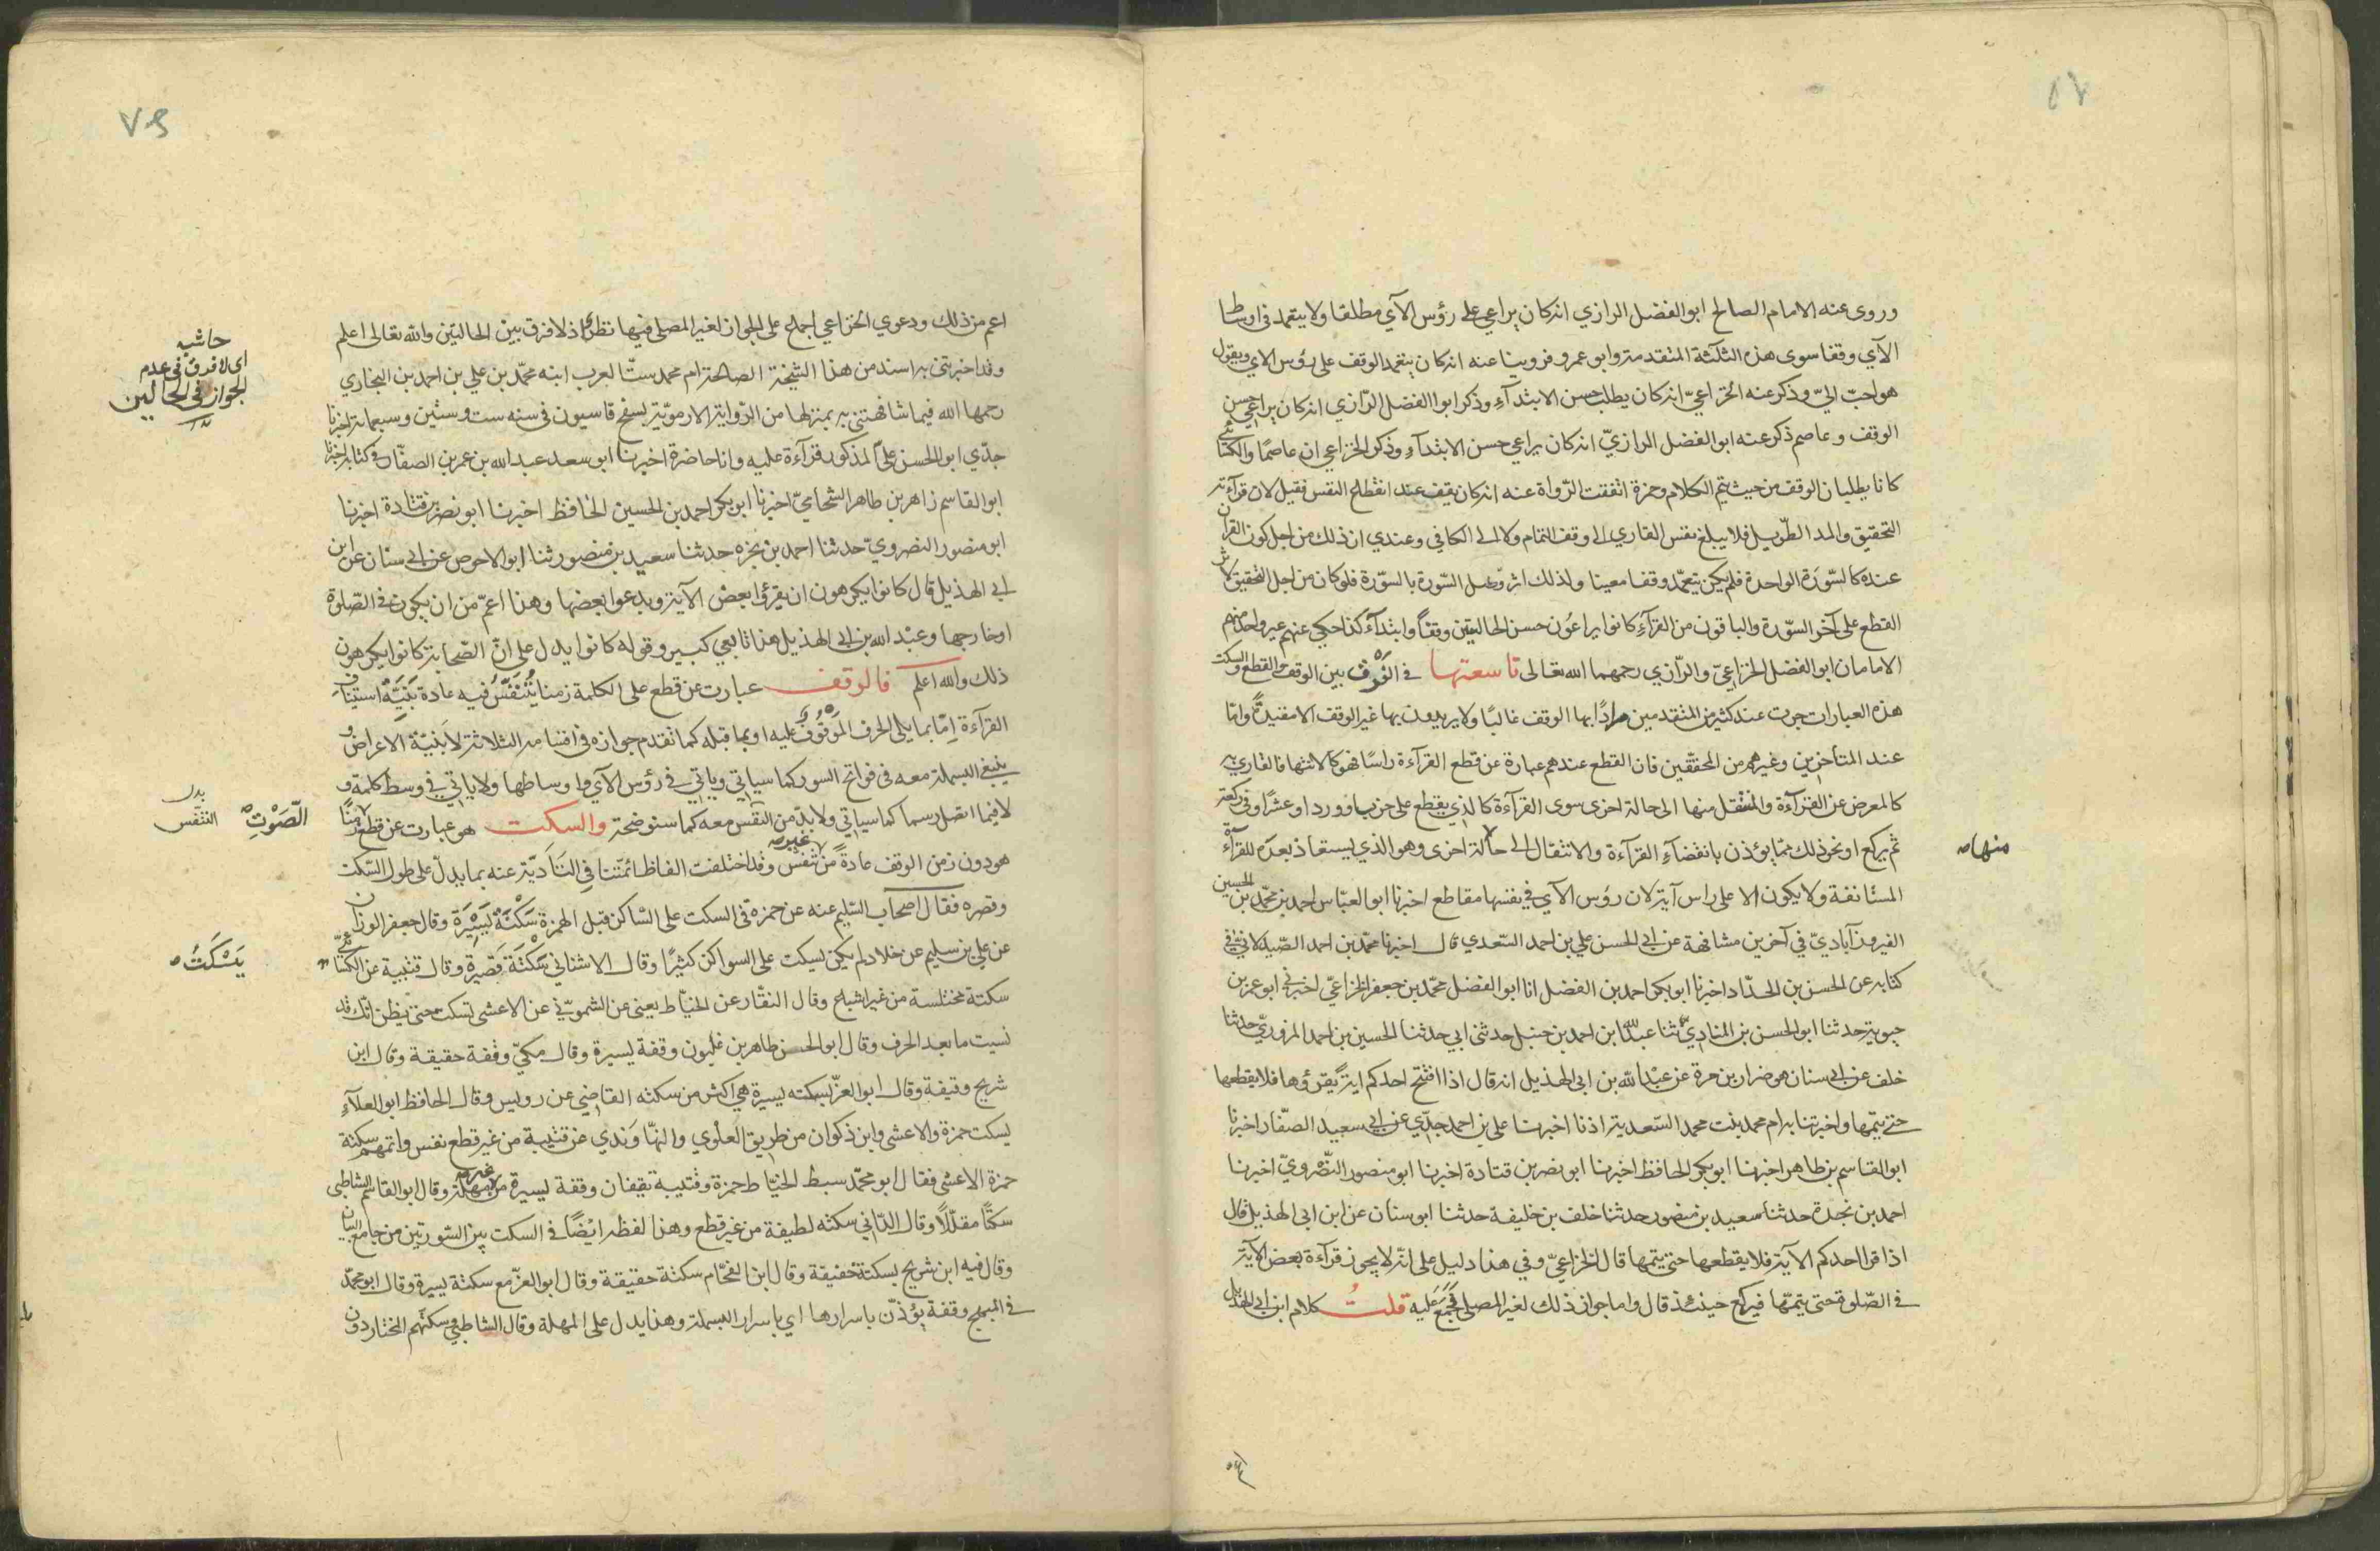 وروى عنه الامام الصالح ابو الفضل الرازي انه كان يراعي على رؤس الآي مطلقا ولا يتعمد في اوساط
الآي وقفا سوى هذه الثلثة المتقدمة وابو عمرو فروينا عنه انه كان يتعمد الوقف على رؤس الاي ويقول
هو احبّ اليّ وذكر عنه الخزاعيّ انه كان يطلب حسن الابتدآءِ وذكر ابوا الفضل الرّازي انه كان يراعي حسن
الوقف وعاصم ذكر عنه ابو الفضل الرازيّ انه كان يراعي حسن الابتدآءِ وذكر الخزاعي ان عاصمًا والكسائي
كانا يطلبان الوقف من حيث يتم الكلام وحمزة اتفقت الرّواة عنه انه كان يقف عند انقطاع النفس فقيل لان قرآءته
التحقيق والمد الطّويل فلا يبلغ نفس القاري الى وقف التمام ولا الى الكافي وعندي ان ذلك من اجل كون القرآن
عنده كالسّورة الواحدة فلم يكن يتعمّد وقفا معينا ولذلك اثر وصل السّورة بالسّورة فلو كان من اجل التحقيق لاثر
القطع على آخر السّورة والباقون من القرآءِ كانوا يراعون حسن الحالتين وقفًا وابتدآء كذا حكي عنهم غير واحد منهم
الامامان ابو الفضل الخزاعيّ والرّازي رحمهما الله تعالى تاسعتها في الفرق بين الوقف والقطع والسكت
هذه العبارات جرت عند كثير من المتقدمين مرادًا بها الوقف غالبًا ولا يريدون بها غير الوقف الا مقيدةً وامّا
عند المتأخرين وغيرهم من المحققين فان القطع عندهم عبارة عن قطع القرآءة راسًا فهو كالانتهاء فالقاري به
كالمعرض عن القرآءة والمنتقل منها الى حالة اخرى سوى القرآءة كالذي يقطع على حزب او ورد او عشر او في ركعة
ثم يركع او نحو ذلك مما يؤذن بانقضآءِ القرآءة والانتقال الى حالة اخرى وهو الذي يستعاذ بعده للقرآءة
منها صح
المستانفة ولا يكون الا على راس آية لان رؤس الآي في نفسها مقاطع اخبرنا ابو العبّاس احمد بن محمّد بن الحسين
الفيروزآباديّ في آخرين مشافهة عن ابي الحسن علي بن احمد السّعدي قال اخبرنا محمّد بن احمد الصّيدلاني في
كتابه عن الحسن بن الحدّاد اخبرنا ابو بكر احمد بن الفضل انا ابو الفضل محمّد بن جعفر الخزاعيّ اخبرني ابو عمر بن
حيوية حدثنا ابو الحسن بن المنادِي ثنا عبد الله ابن احمد بن حنبل حدثني ابي حدثنا الحسين بن احمد المروريّ حدثنا
خلف عن ابي سنان هو ضرار بن مرة عن عبد الله بن ابي الهذيل انه قال اذا افتتح احدكم اية يقرؤها فلا يقطعها
حتى يتمها واخبرتنا به ام محمد بنت محمد السّعدية اذنا اخبرنا علي بن احمد جدّي عن ابي سعيد الصفّار اخبرنا
ابو القاسم بن طاهر اخبرنا ابو بكر الحافظ اخبرنا ابو نصر بن قتادة اخبرنا ابو منصور النّضرويّ اخبرنا
احمد بن نجدة حدثنا سعيد بن منصور حدثنا خلف بن خليفة حدثنا ابو سنان عن ابن ابي الهذيل قال
اذا قرا احدكم الآية فلا يقطعها حتى يتمها قال الخزاعيّ وفي هذا دليل على انّه لا يجوز قرآءة بعض الآية
في الصّلوة حتى يتمّها فيركع حينئذ قال واما جواز ذلك لغير المصلى فمجمَع عَليه قلتُ كلام ابن ابي الهذيل
٧٥
اعم من ذلك ودعوي الخزاعي اجماع على الجواز لغير المصلي فيها نظر اذ لا فرق بين الحالتين والله تعالى اعلم
حاشيه
اى لا فرق فى عدم
الجواز فى الحالين
وقد اخبرتني به اسند من هذا الشيخة الصالحة ام محمد ست العرب ابنه محمّد بن علي بن احمد بن البخاري
رحمها الله فيما شافهتني به بمنزلها من الزّواية الارمويّة بسفح قاسيون في سنه ست وستين وسبعمائة اخبرنا
جدّي ابو الحسن علي المذكور قرآءة عليه وانا حاضرة اخبرنا ابو سعد عبد الله بن عمر بن الصفّار في كتابه اخبرنا
ابو القاسم زاهر بن طاهر الشحاميّ اخبرنا ابو بكر احمد بن الحسين الحافظ اخبرنا ابو نصر بن قتادة اخبرنا
ابو منصور النضرويّ حدثنا احمد بن نجزه حدثنا سعيد بن منصور ثنا ابو الاحوص عن ابي سنان عن ابن
ابي الهذيل قال كانوا يكرهون ان يقرؤا بعض الآية ويدعوا بعضها وهذا اعمّ من ان يكون في الصّلوة
او خارجها وعبْد الله بن ابي الهذيل هذا تابعي كبير وقوله كانوا يدل على انّ الصّحابة كانوا يكرهون
ذلك والله اعلم فالوقف عبارت عن قطع على الكلمة زمنا يُتَنَفّسُ فيه عادة بِنيَّة استيناف
القرآءة اِمّا بما يلي الحرف المَوقُوف عليه او بما قبله كما تقدم جوازه في اقسامه الثلاثة لا بنيّة الاعراض و
ينبغي البسملة معه في فواتح السور كما سياتي وياتي في رؤس الآي واوساطها ولا ياتي في وسط كلمة و
لا فيما اتصل رسما كما سياتي ولا بدّ من التنفس معه كما سنوضحة والسكت هو عبارت عن قطع زمنًا
الصَّوْتِ صح
بدل
التنفس
هو دون زمن الوقف عادةً من غير تنفس وقد اختلفت الفاظ ائمّتنا في التَأدِيّة عنه بما يدلّ على طول السّكت
وقصره فقال اصحاب السّليم عنه عن حمزه في السكت على السّاكن قبل الهمزة سَكْتَةٌ يَسِيْرَة وقال جعفر الوزّان
عن علي بن سليم عن خلاد لم يكن يسكت على السواكن كثيرًا وقال الاشناني سَكْتَة قَصِيرة وقال قتيبة عن الكسائي
يَسْكُتُ صح
سكتة مختلسة من غير اشباع وقال النقّار عن الخيّاط يعني عن الشمونيّ عن الاعشى تسكت حتى يظن انّك قد
نسيت ما بعد الحرف وقال ابو الحسن طاهر بن غلبون وقفة يسيرة وقال مكيّ وقفة حقيقة وقال ابن
شريح وقيفة وقال ابو العزّ بسكته يسيرة هي اكثر من سكته القاضي عن رويس وقال الحافظ ابو العلآءِ
يسكت حمزة والاعشى وابن ذكوان من طريق العلْوي والنهّاوَندي عن قتيبة من غير قطع نفس واتمهم سكتة
حمزة الاعشى فقال ابو محمّد سبط الخيّاط حمزة وقتيبة يقفان وقفة يسيرة من غير مهلة وقال ابو القاسم الشاطبى
سكتًا مقلّلًا وقال الدّاني سكته لطيفة من غير قطع وهذا لفظه ايْضًا في السكت بين السّورتين من جامع البيان
وقال فيه ابن شريح بسكتة خفيفة وقال ابن الفحّام سكتة حقيقة وقال ابو العزّ مع سكتة يسيرة وقال ابو محمّد
في المبهج وقفة يؤذنّ باسرارها اي باسرار البسملة وهذا يدل على المهلة وقال الشاطبي وسكتهم المختار دون